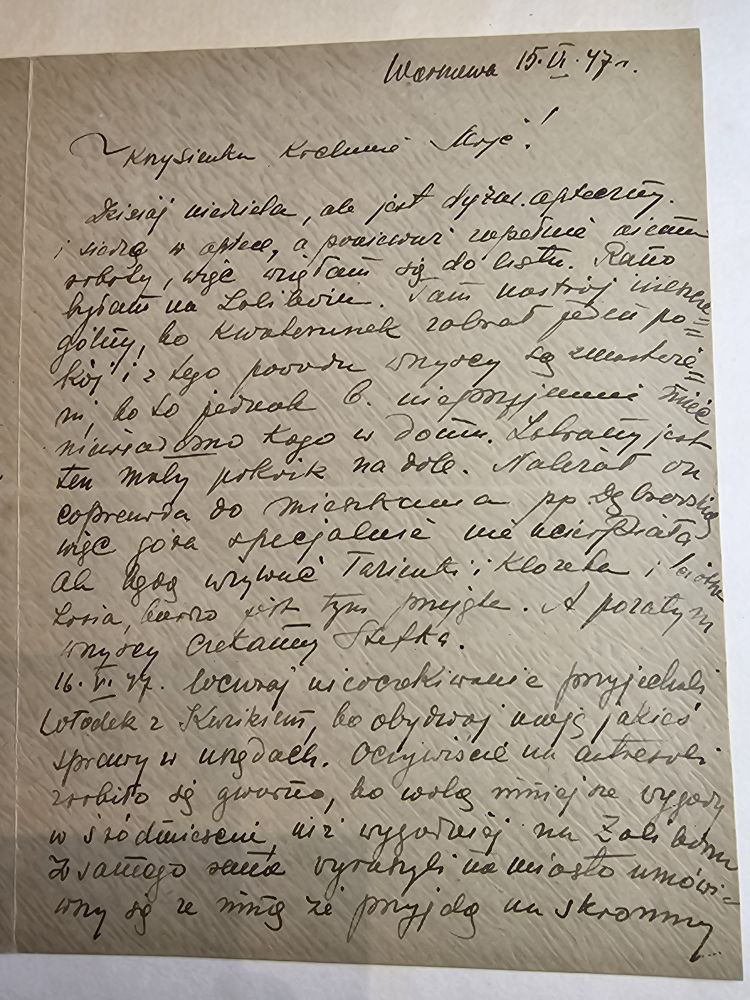 Warszawa 15.VI.47 r.
Krysieńku Kochanie Moje!
Dzisiaj niedziela, ale jest dyżur apteczny.
i siedzę w aptece, a ponieważ zupełnie niema
roboty, więc wzięłam się do listu. Rano
byłam na Żoliborzu. Tam nastrój nieszcze=
gólny, bo Kwaterunek zabrał jeden po=
kój i z tego powodu wszyscy są zmartwie=
ni, bo to jednak b. nieprzyjemnie mieć
niewiadomo kogo w domu. Zabrany jest
ten mały pokoik na dole. Należał on
coprawda do mieszkania pp.
więc góra specjalnie nie ucierpiała
ale będą używać Łazienki i Klozetu i ciotka
Zosia, bardzo jest tym przejęta. A pozatym
wszyscy czekamy Stefka.
16.VI.47. Wczoraj nieoczekiwanie przyjechali
Włodek z, bo obydwaj mają jakieś
sprawy w urzędach. Oczywiście na antresoli
zrobiło się gwarno, bo wolą mniejsze wygody
w śródmieściu, niż wygodniej na Żoliborzu
Z samego rana wyruszyli na miasto umówi-
wszy się ze mną że przyjdą na skromny